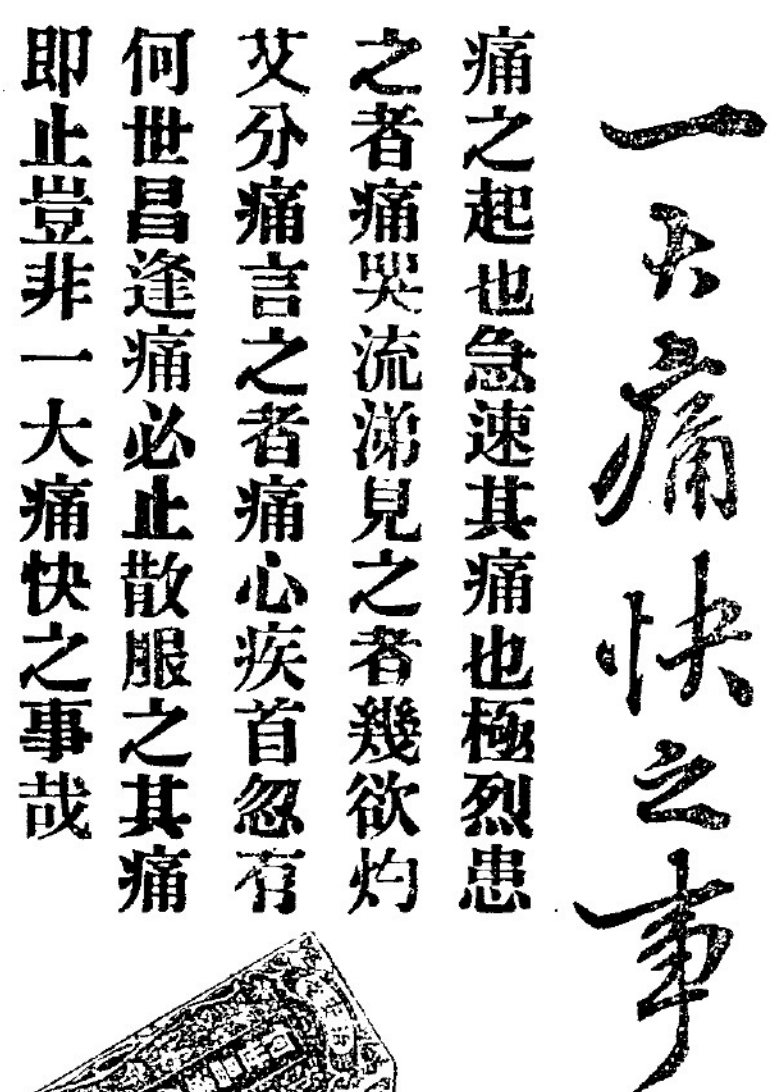 一大痛快之事
痛之起也急速其痛也極烈患
之者痛哭流涕見之者幾欲灼
艾分痛言之者痛心疾首忽有
何世昌逢痛必止散服之其痛
即止豈非一大痛快之事哉